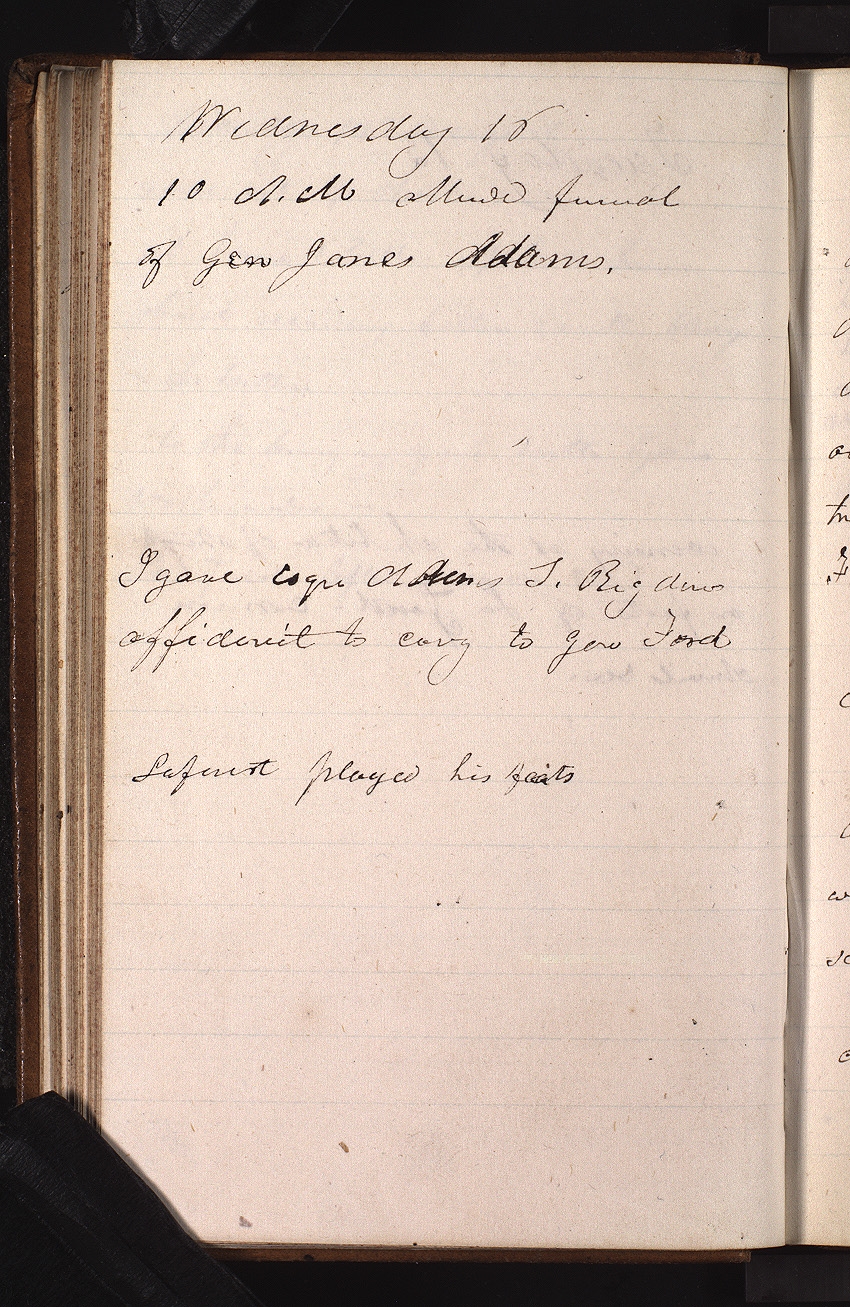 Wednesday 16
10 A.M attend funeral
of Gen James Adams.
I gave Esqr Adams S. Rigdons
affidavit to carry to Gov Ford
played his feats